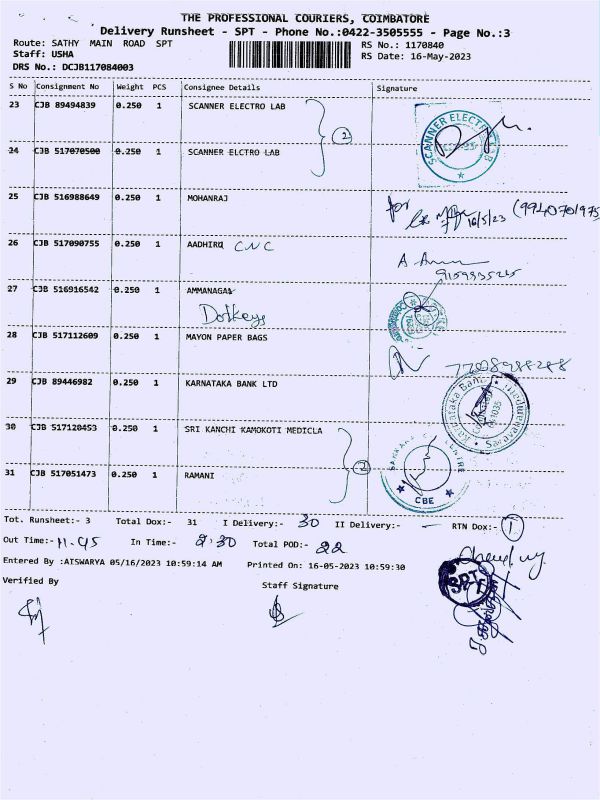 THE PROFESSIONAL COURIERS, COIMBATORE
Delivery Runsheet - SPT - Phone No.:0422-3505555 - Page No.:3
Route: SATHY MAIN ROAD SPT
RS No.: 1170840
Staff: USHA
RS Date: 16-May-2023
DRS No.: DCJB117084003
S No Consignment No Weight PCS Consignee Details Signature
23 CJB 89494839 0.250 1 SCANNER ELECTRO LAB
2
SCANNER ELECTRO LAB
24 CJB 517070500 0.250 1 SCANNER ELCTRO LAB
25 CJB 516988649 0.250 1 MOHANRAJ
for 16/5/23 (9940701975)
26 CJB 517090755 0.250 1 AADHIRQ CNC
A
27 CJB 516916542 0.250 1 AMMANAGAL
Dotkeys
28 CJB 517112609 0.250 1 MAYON PAPER BAGS
29 CJB 89446982 0.250 1 KARNATAKA BANK LTD
Karnataka Bank
30 CJB 517120453 0.250 1 SRI KANCHI KAMOKOTI MEDICLA
2
CBE
31 CJB 517051473 0.250 1 RAMANI
Tot. Runsheet:- 3 Total Dox:- 31 I Delivery:- 30 II Delivery:- — RTN Dox:- 1
Out Time:- 11.45 In Time:- 2.30 Total POD:- 22
Entered By :AISWARYA 05/16/2023 10:59:14 AM Printed On: 16-05-2023 10:59:30
Verified By
Staff Signature
SPT